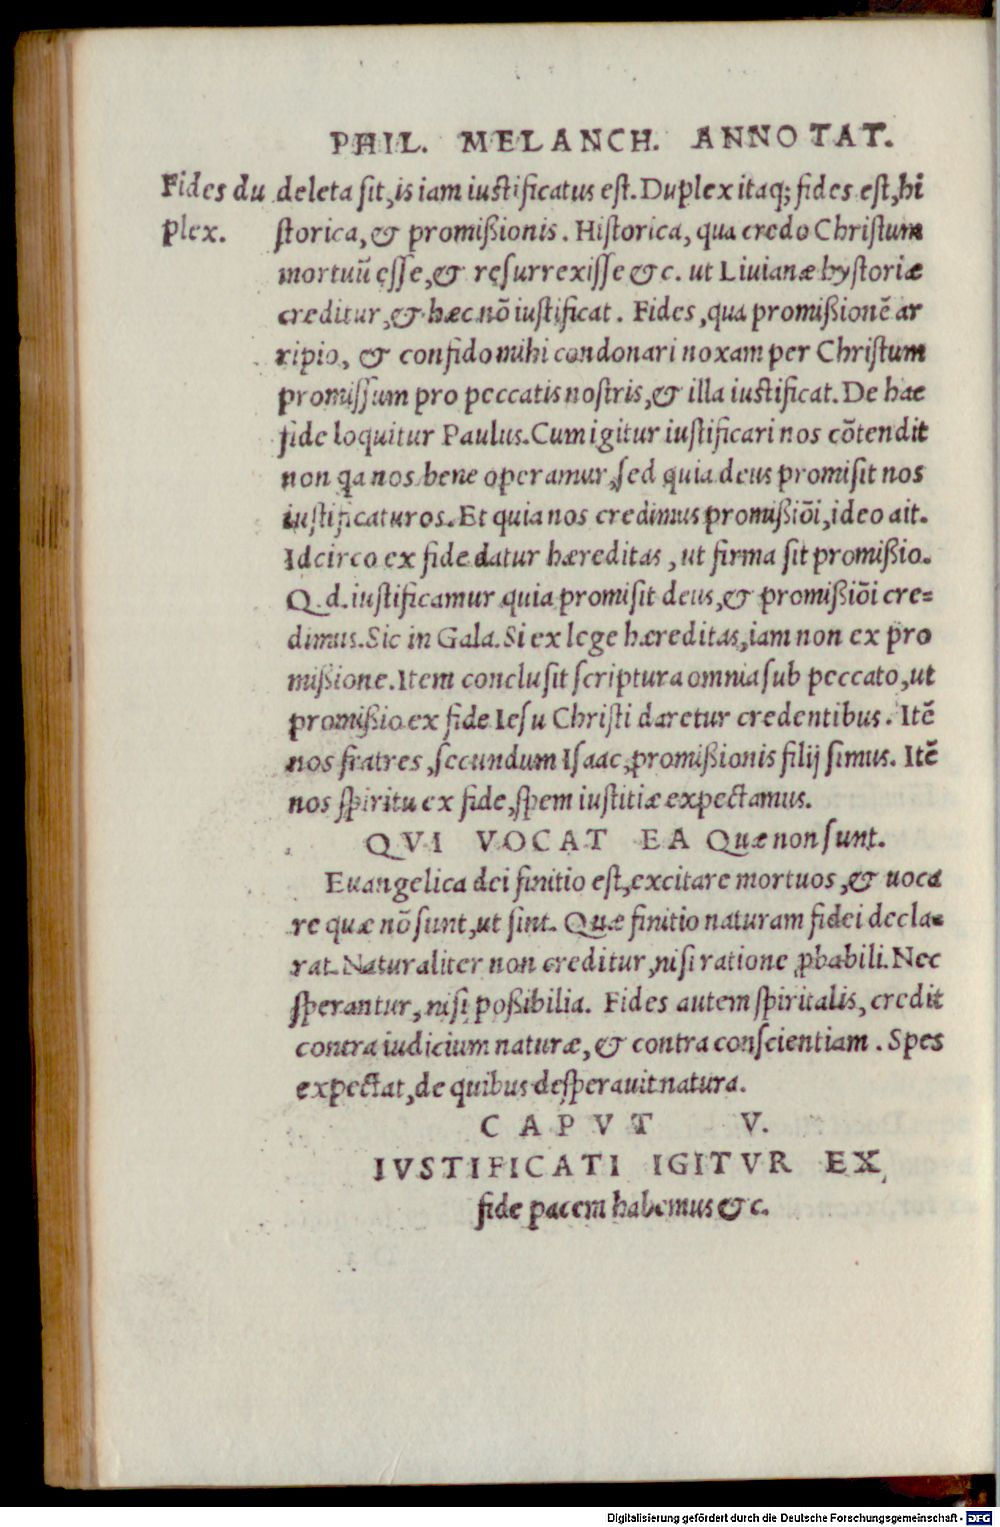 PHIL. MELANCH. ANNOTAT.
Fides du
plex.
deleta sit, is iam iustificatus est. Duplex itaq; fides est, hi
storica, & promißionis. Historica, qua credo Christum
mortuũ esse, & resurrexisse &c. ut Liuianæ hystoriæ
creditur, & hæc nõ iustificat. Fides, qua promißionẽ ar
ripio, & confido mihi condonari noxam per Christum
promissum pro peccatis nostris, & illa iustificat. De hac
fide loquitur Paulus. Cum igitur iustificari nos cõtendit
non qa nos bene operamur, sed quia deus promisit nos
iustificaturos. Et quia nos credimus promißiõi, ideo ait.
Idcirco ex fide datur hæreditas, ut firma sit promißio.
Q.d. iustificamur quia promisit deus, & promißiõi cre=
dimus. Sic in Gala. Si ex lege hæreditas, iam non ex pro
mißione. Item conclusit scriptura omnia sub peccato, ut
promißio ex fide Iesu Christi daretur credentibus. Itẽ
nos fratres, secundum Isaac, promißionis filij simus. Itẽ
nos spiritu ex fide, spem iustitiæ expectamus.
QVI VOCAT EA Quæ non sunt.
Euangelica dei finitio est, excitare mortuos, & uoca
re quæ nõ sunt, ut sint. Quæ finitio naturam fidei decla=
rat. Naturaliter non creditur, nisi ratione ꝓbabili. Nec
sperantur, nisi poßibilia. Fides autem spiritalis, credit
contra iudicium naturæ, & contra conscientiam. Spes
expectat, de quibus desperauit natura.
CAPVT V.
IVSTIFICATI IGITVR EX
fide pacem habemus &c.
Digitalisierung gefördert durch die Deutsche Forschungsgemeinschaft - DFG